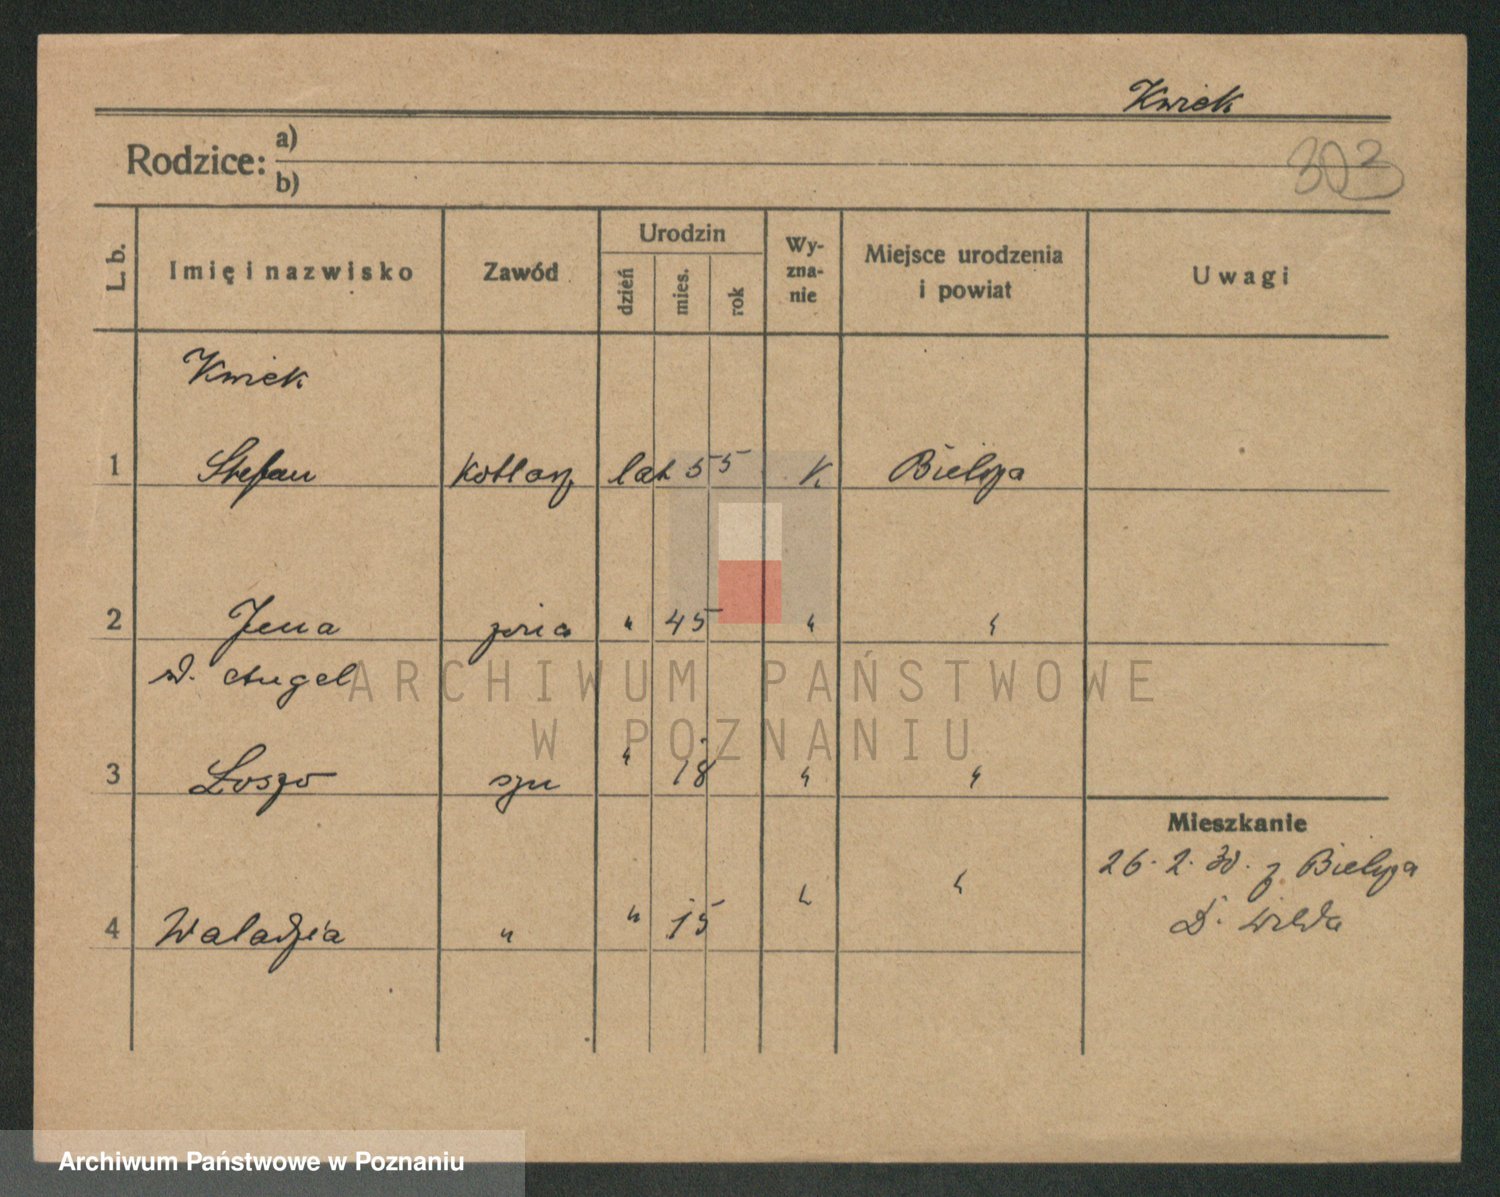 Kwiek
Rodzice: a)
b)
303
L. b. Imię i nazwisko Zawód Urodzin dzień mies. rok Wyznanie Miejsce urodzenia i powiat Uwagi
Kwiek
1 Stefan kotlarz lat 55 K. Bielsza
2 Jena żona " 45 " "
d. Angel
3 Loszo syn " 18 " "
Mieszkanie
26. 2. 30. z Bielsza
4 Waladzia " " 15 " "
D. Wilda
ARCHIWUM PAŃSTWOWE
W POZNANIU
Archiwum Państwowe w Poznaniu